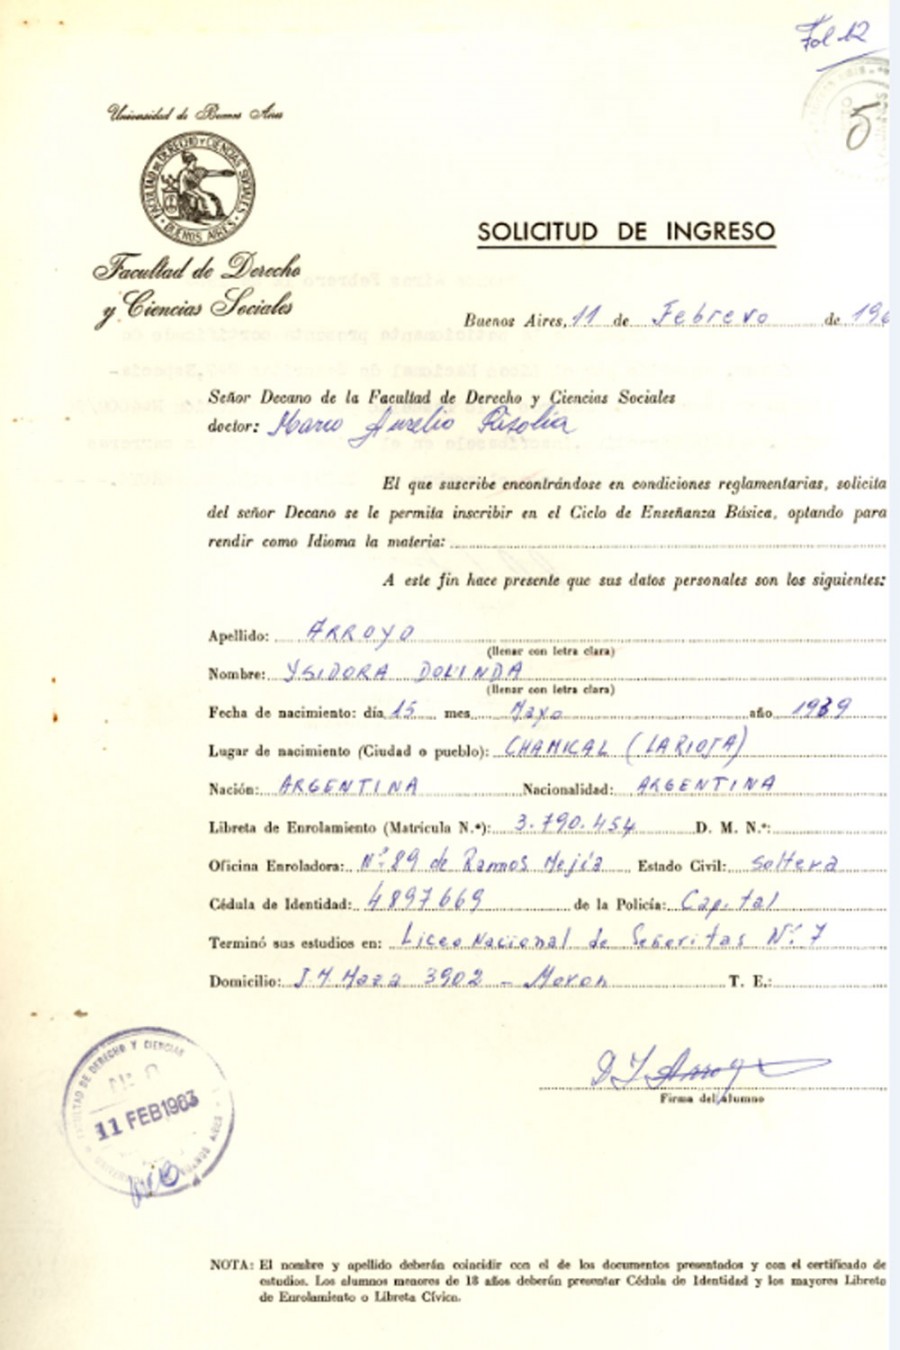 Fol 12
5
Universidad de Buenos Aires
FACULTAD DE DERECHO Y CIENCIAS SOCIALES
BUENOS AIRES
Facultad de Derecho
y Ciencias Sociales
SOLICITUD DE INGRESO
Buenos Aires, 11 de Febrero de 196
Señor Decano de la Facultad de Derecho y Ciencias Sociales
doctor: Marco Aurelio Risolía
El que suscribe encontrándose en condiciones reglamentarias, solicita
del señor Decano se le permita inscribir en el Ciclo de Enseñanza Básica, optando para
rendir como Idioma la materia:
A este fin hace presente que sus datos personales son los siguientes:
Apellido: ARROYO
(llenar con letra clara)
Nombre: YSIDORA DOLINDA
(llenar con letra clara)
Fecha de nacimiento: día 15 mes Mayo año 1939
Lugar de nacimiento (Ciudad o pueblo): CHAMICAL (LA RIOJA)
Nación: ARGENTINA Nacionalidad: ARGENTINA
Libreta de Enrolamiento (Matrícula N.º): 3.790.454 D. M. N.º:
Oficina Enroladora: Nº 89 de Ramos Mejía Estado Civil: soltera
Cédula de Identidad: 4897669 de la Policía: Capital
Terminó sus estudios en: Liceo Nacional de Señoritas Nº 7
Domicilio: J.M. Maza 3902 - Moron T. E.:
D Y Arroyo
Firma del alumno
FACULTAD DE DERECHO Y CIENCIAS
11 FEB 1963
BUENOS AIRES
NOTA: El nombre y apellido deberán coincidir con el de los documentos presentados y con el certificado de
estudios. Los alumnos menores de 18 años deberán presentar Cédula de Identidad y los mayores Libreta
de Enrolamiento o Libreta Cívica.